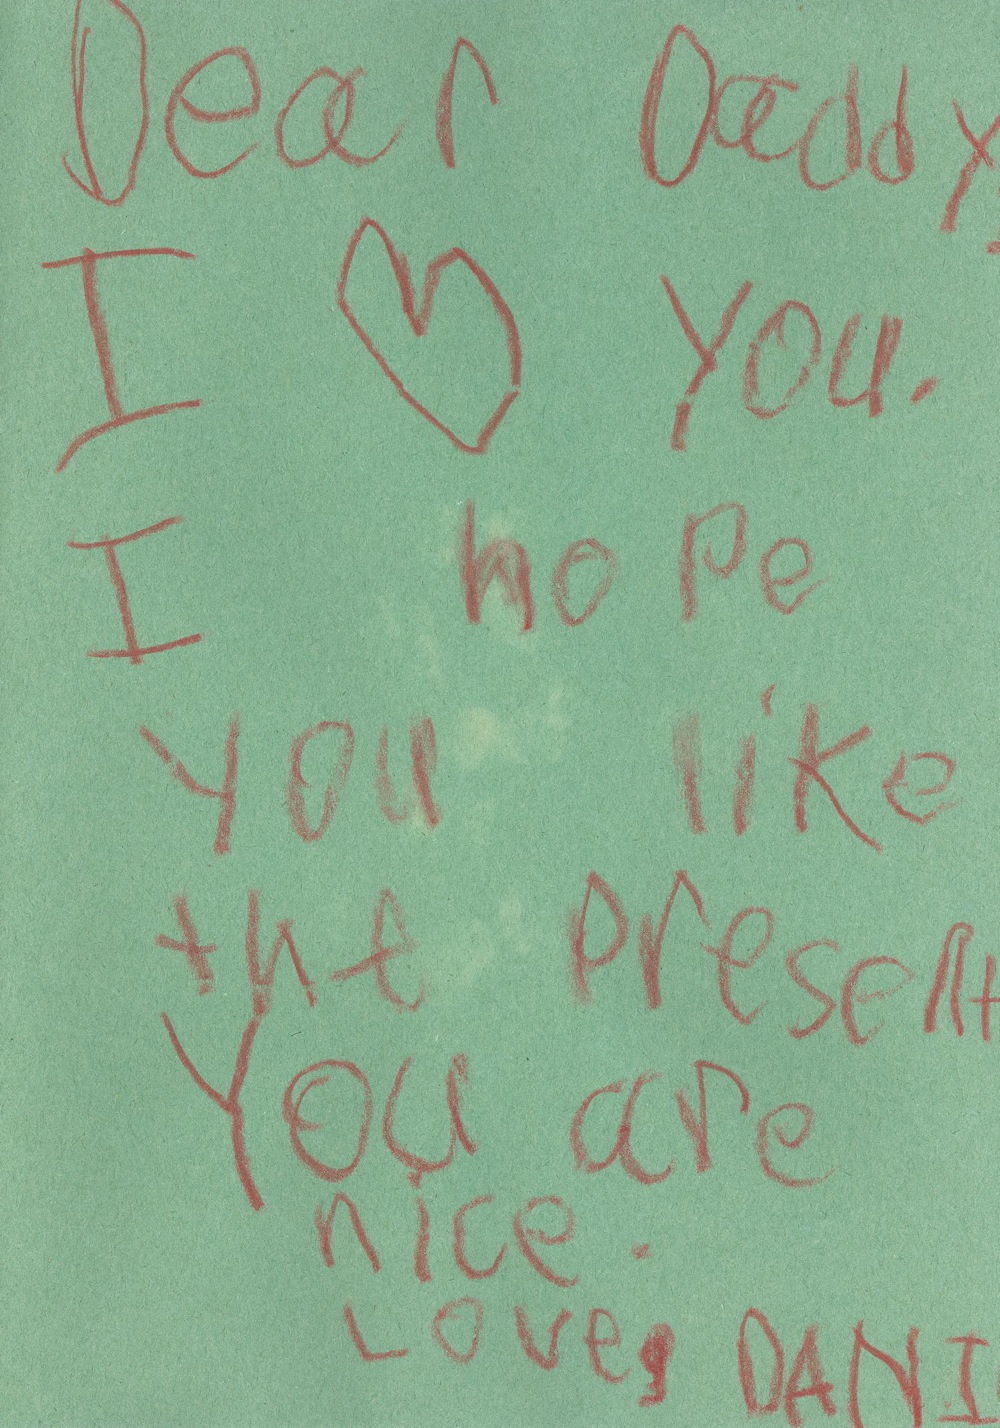 Dear Daddy,
I ♥ you.
I hope
you like
the present
You are
nice.
Love, DANI